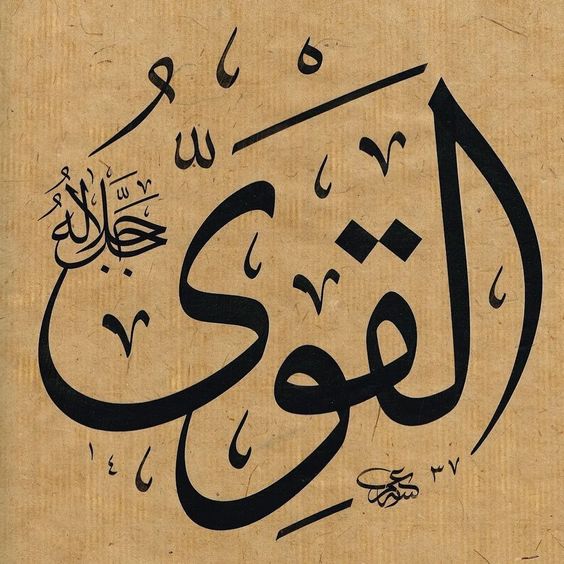 القوى
جل جلاله
١٤٣٧